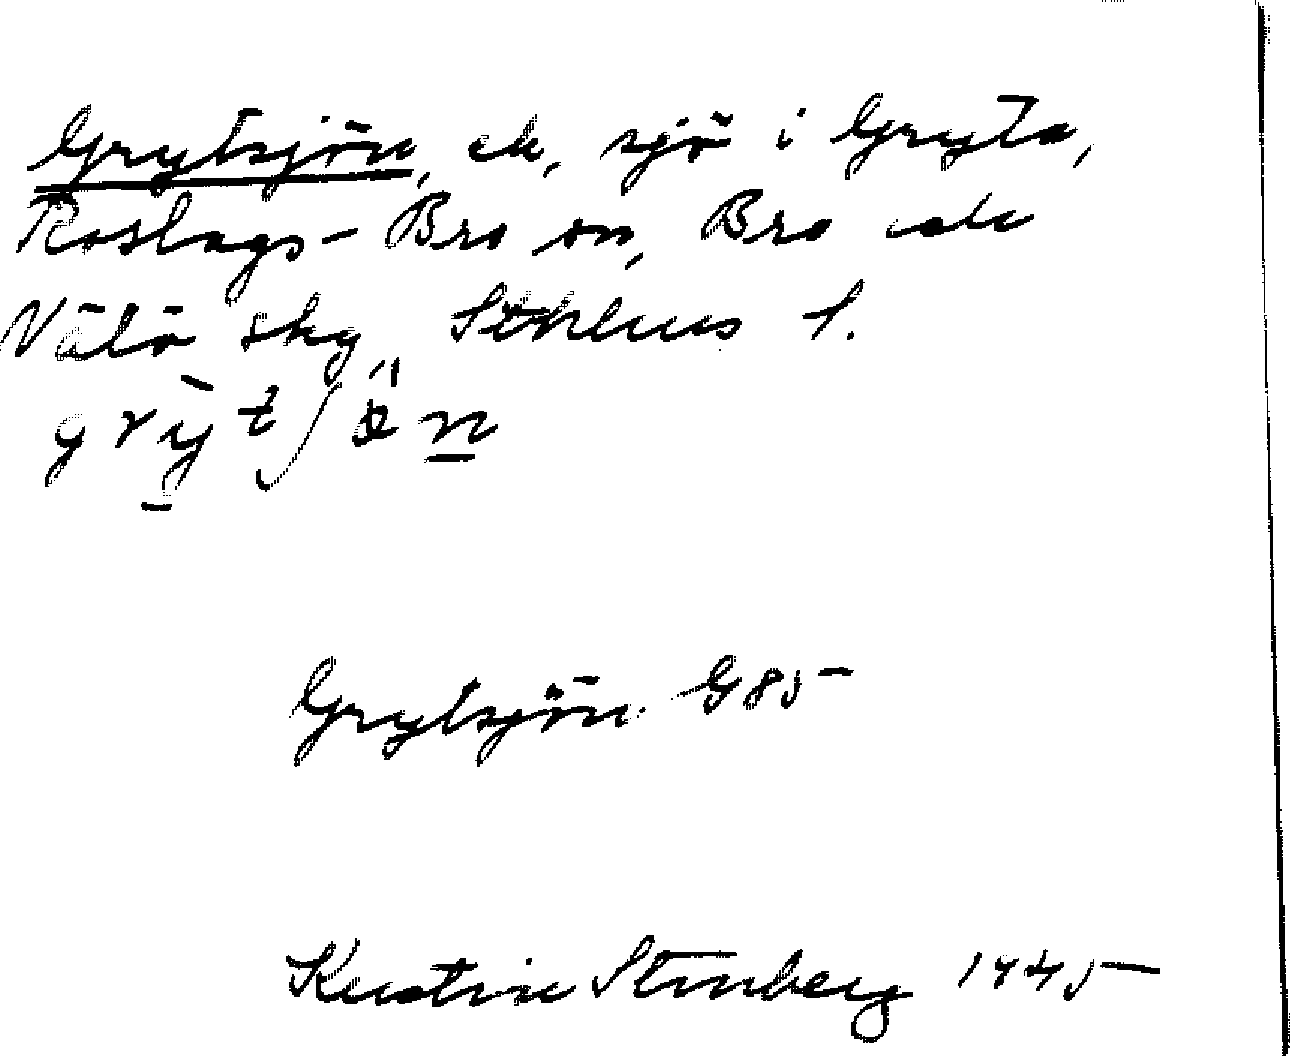 Grytsjön, ek, sjö i Gryta,
Roslags-Bro sn, Bro och
Vätö skg Sthlms l.
Grytsjön G 85
Kerstin Stenberg 1945